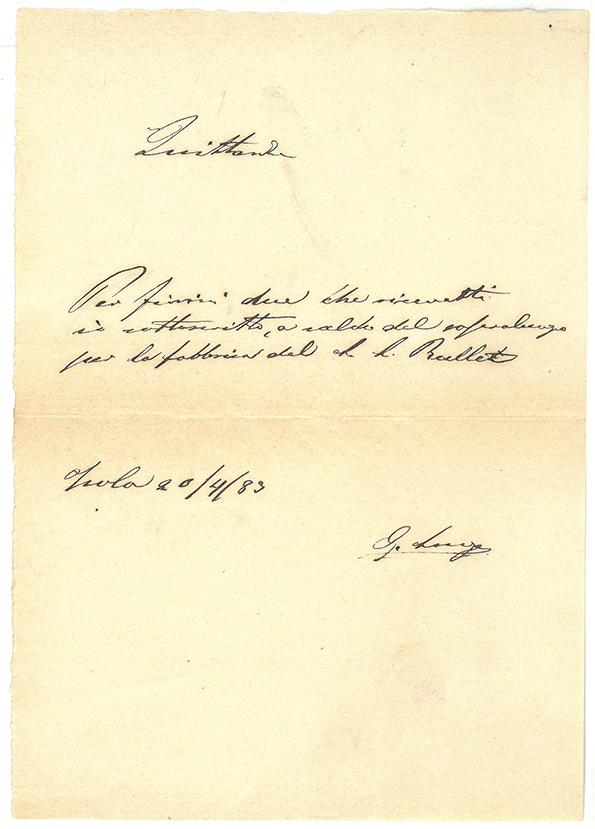 Quittanza
Per fiorini due che ricevetti
io sottoscritto, a saldo del sopraluogo
per la fabbrica del
Isola 20/4/83
G.